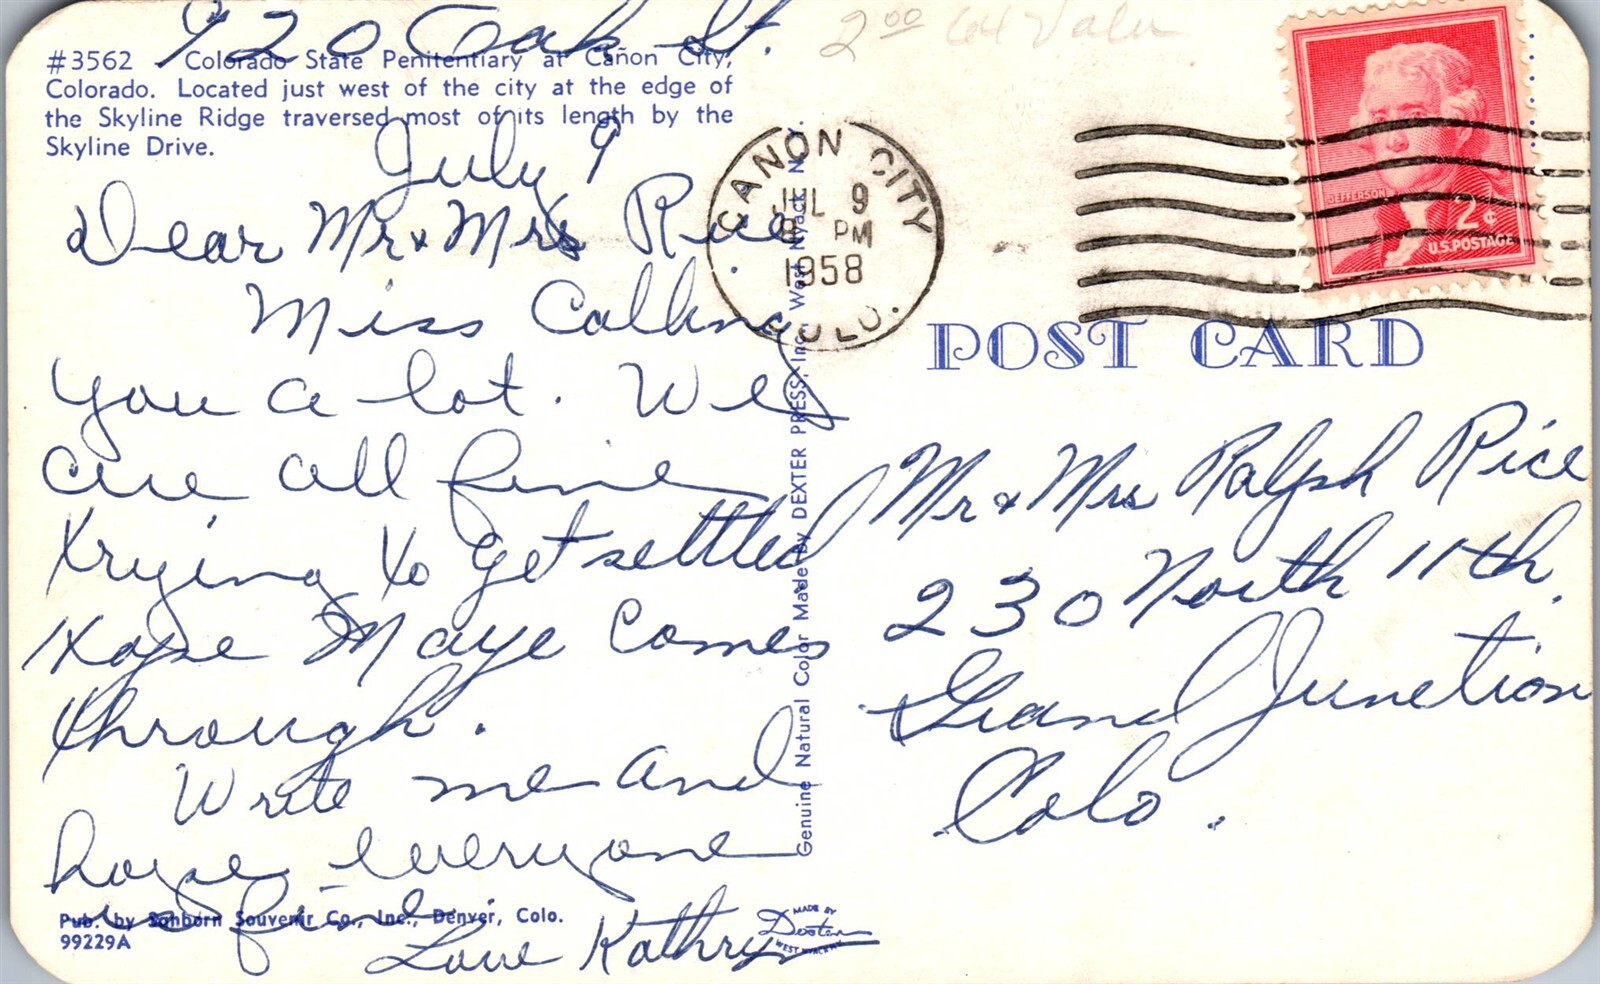 920 Oak St.
2⁰⁰
#3562 Colorado State Penitentiary at Cañon City,
Colorado. Located just west of the city at the edge of
the Skyline Ridge traversed most of its length by the
Skyline Drive.
July 9
Dear Mr & Mrs Rice.
Miss Calling
you a lot. We
are all fine
trying to get settled
Hope Maye Comes
through.
Write me and
hope everyone
is fine.
Love Kathryn
Pub. by Sanborn Souvenir Co., Inc., Denver, Colo.
99229A
MADE BY
Dexter
WEST NYACK N.Y.
Genuine Natural Color Made by DEXTER PRESS, Inc. West Nyack, N.Y.
CANON CITY
JUL 9
8 PM
1958
COLO.
JEFFERSON
2¢
U.S. POSTAGE
POST CARD
Mr & Mrs Ralph Rice
230 North 11th.
Grand Junction
Colo.